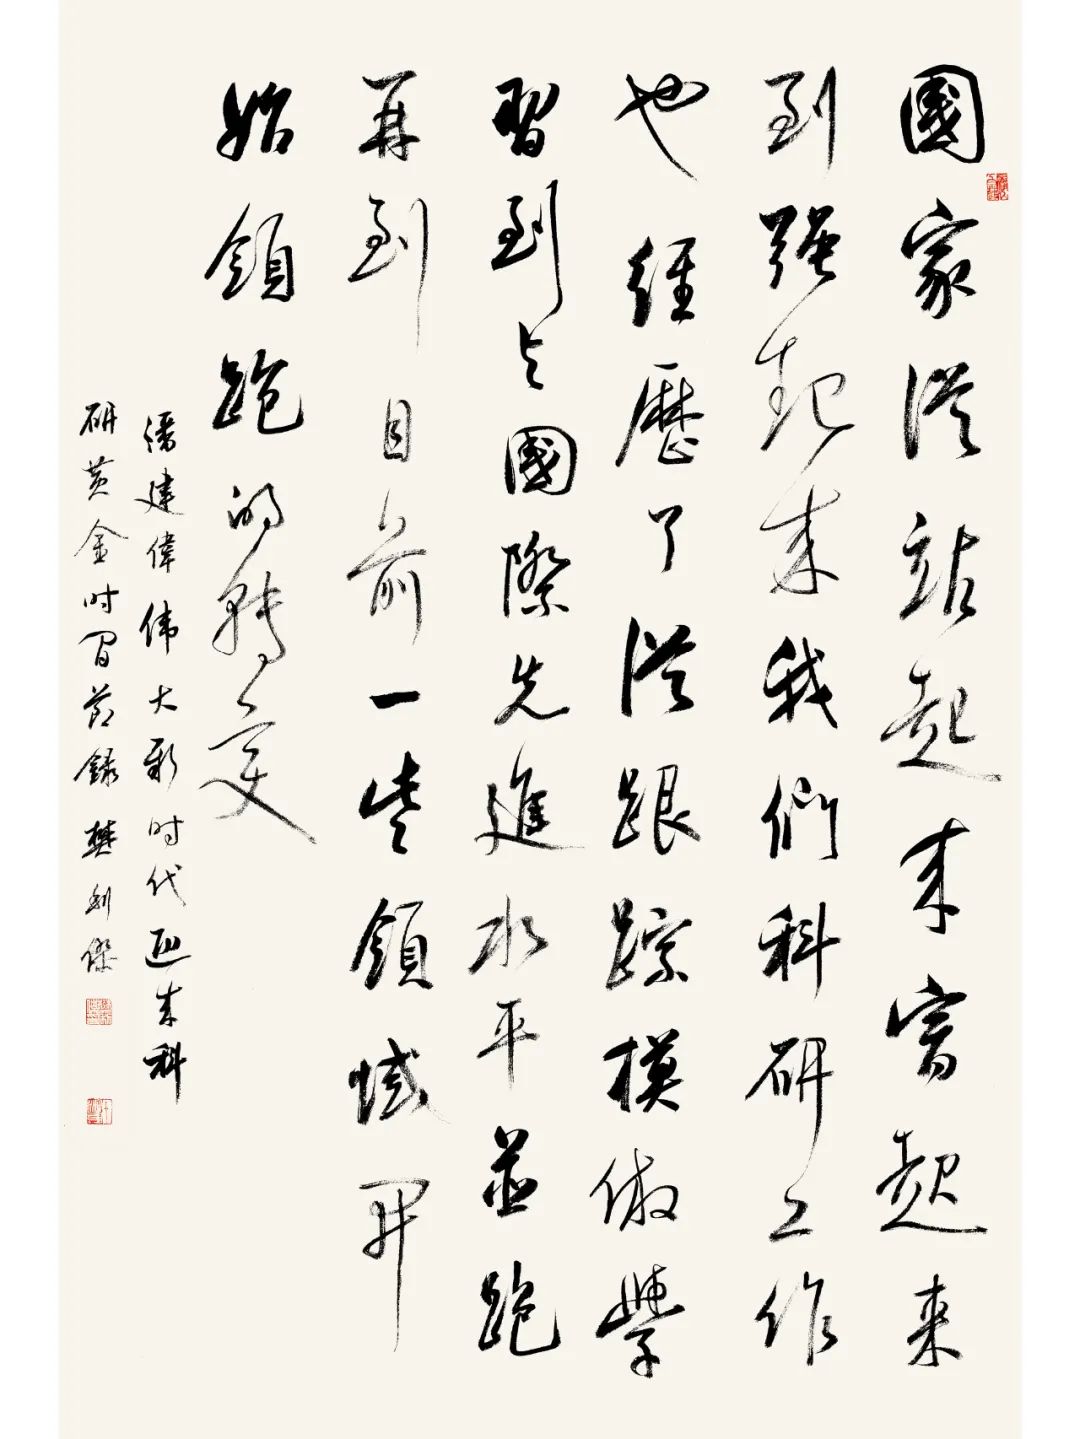 國家從站起来富起来
到強起来我們科研工作
也經歷了從跟踪模倣學
習到与國際先進水平並跑
再到目前一些領域開
始領跑的轉變
潘建偉伟大新时代迎来科
研黄金时间節錄 樊利傑